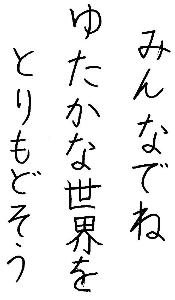 みんなでね
ゆたかな世界を
とりもどそう